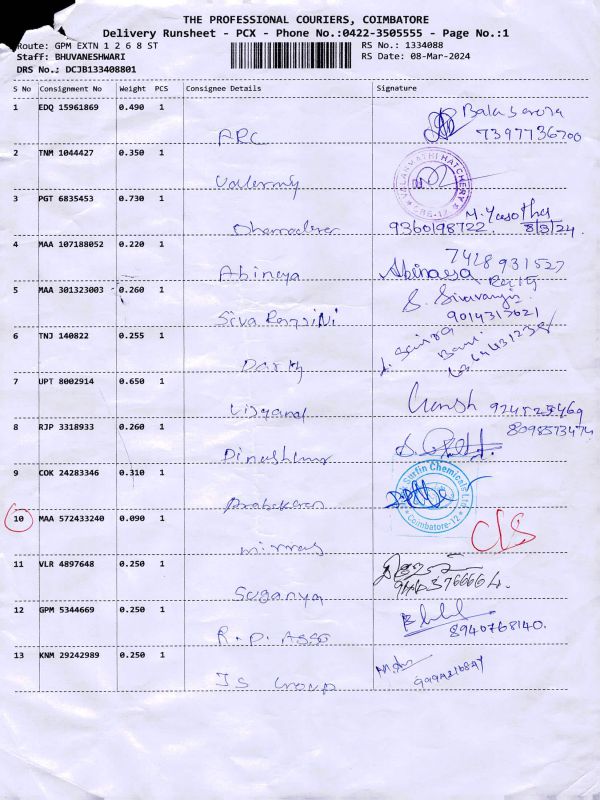 THE PROFESSIONAL COURIERS, COIMBATORE
Delivery Runsheet - PCX - Phone No.:0422-3505555 - Page No.:1
Route: GPM EXTN 1 2 6 8 ST RS No.: 1334088
Staff: BHUVANESHWARI RS Date: 08-Mar-2024
DRS No.: DCJB133408801
S No Consignment No Weight PCS Consignee Details Signature
1 EDQ 15961869 0.490 1
Bala
7397736700
ARC
2 TNM 1044427 0.350 1
VALARMATHI HATCHERY
CBE-12
3 PGT 6835453 0.730 1
M. Yasotha
9360198722. 8/3/24.
4 MAA 107188052 0.220 1
7428931527
Abinaya
5 MAA 301323003 0.260 1
9014313621
Siva Ranjini
6 TNJ 140822 0.255 1
7 UPT 8002914 0.650 1
8 RJP 3318933 0.260 1
8098573474
9 COK 24283346 0.310 1
Surfin Chemicals Ltd
Coimbatore-12
Prabakaran
10 MAA 572433240 0.090 1
C/S
11 VLR 4897648 0.250 1
Suganya
12 GPM 5344669 0.250 1
8940768140.
R.P. Asso
13 KNM 29242989 0.250 1
JS Group